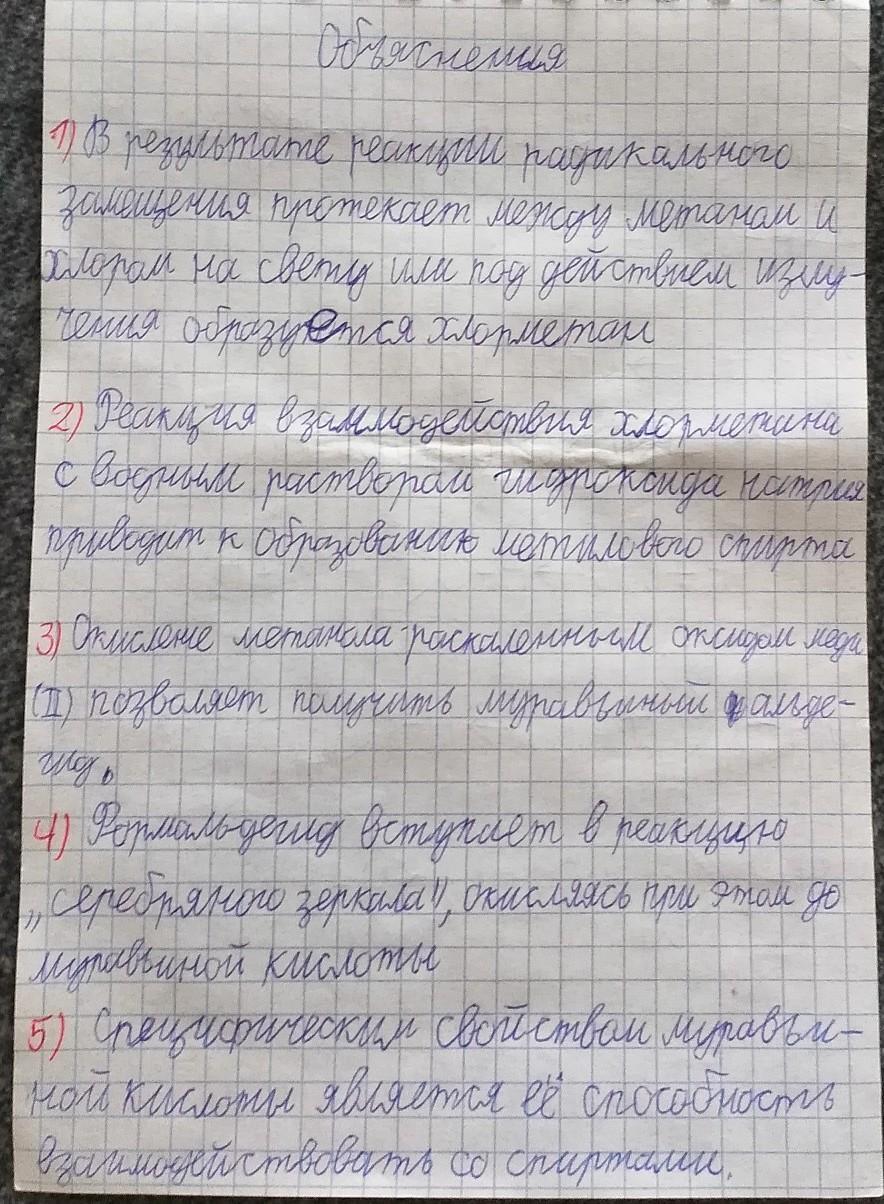 Объяснения
1) В результате реакции радикального
замещения протекает между метаном и
хлором на свету или под действием излу-
чения образуется хлорметан
2) Реакция взаимодействия хлорметана
с водным раствором гидроксида натрия
приводит к образованию метилового спирта
3) Окисление метанола раскаленным оксидом меди
(II) позволяет получить муравьиный альде-
гид.
4) Формальдегид вступает в реакцию
„серебряного зеркала", окисляясь при этом до
муравьиной кислоты
5) Специфическим свойством муравьи-
ной кислоты является её способность
взаимодействовать со спиртами.